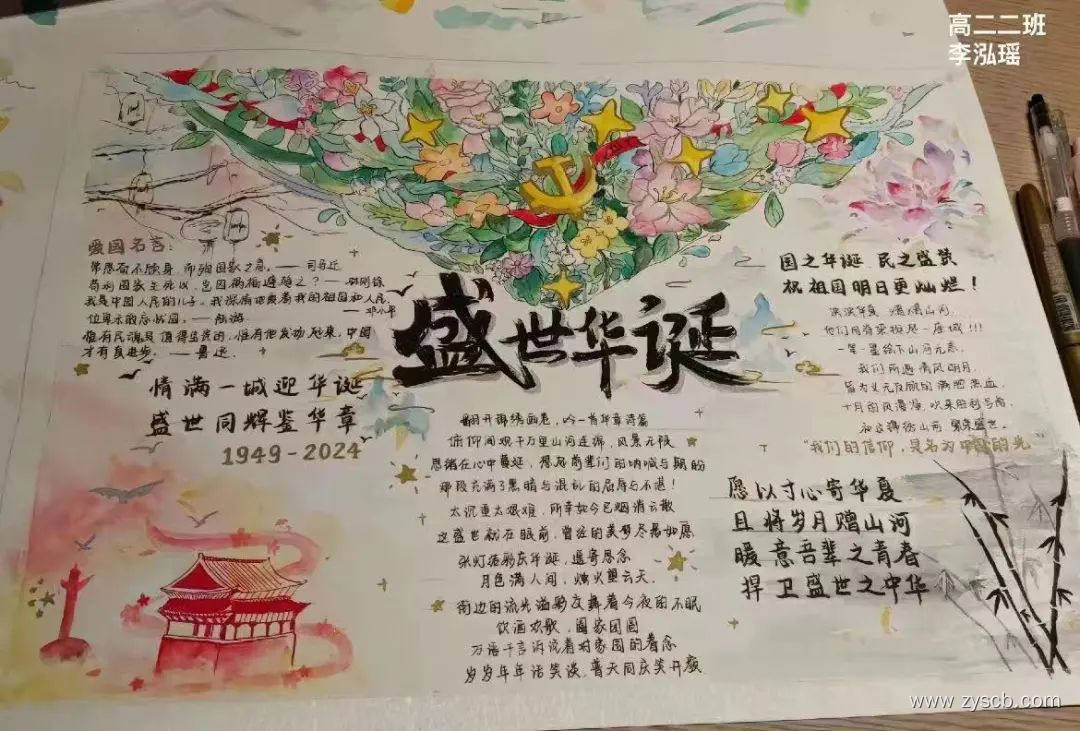 高二二班
李泓瑶
爱国名言：
常思奋不顾身，而殉国家之急。——司马迁
苟利国家生死以，岂因祸福避趋之？——林则徐
我是中国人民的儿子。我深情地爱着我的祖国和人民。
——邓小平
位卑未敢忘忧国。——陆游
惟有民魂是值得宝贵的，惟有他发动起来，中国
才有真进步。——鲁迅
情满一城迎华诞
盛世同辉鉴华章
1949-2024
盛世华诞
翻开锦绣画卷，吟一首华章诗篇
俯仰间观千万里山河连绵，风景无限
思绪在心中蔓延，想起前辈们的呐喊与期盼
那段充满了黑暗与混乱的屈辱与不堪！
太沉重太艰难，所幸如今已烟消云散
这盛世就在眼前，曾经的美梦尽皆如愿
张灯结彩庆华诞，遥寄思念
月色满人间，烟火望云天。
街边的流光溢彩交舞着今夜的不眠
饮酒欢歌，阖家团圆
万语千言诉说着对家国的眷念
岁岁年年话笑谈，普天同庆笑开颜
国之华诞，民之盛赞
祝祖国明日更灿烂！
山河，
他们用脊梁撑起一座城!!!
一笔一墨绘下山河无恙，
我们所遇清风明月，
皆为义无反顾的满腔热血，
十月的风漫漫，吹来胜利号角，
山河，繁荣盛世。
“我们的信仰，是名为中国的光”
愿以寸心寄华夏
且将岁月赠山河
暖意吾辈之青春
捍卫盛世之中华
www.zyscb.com